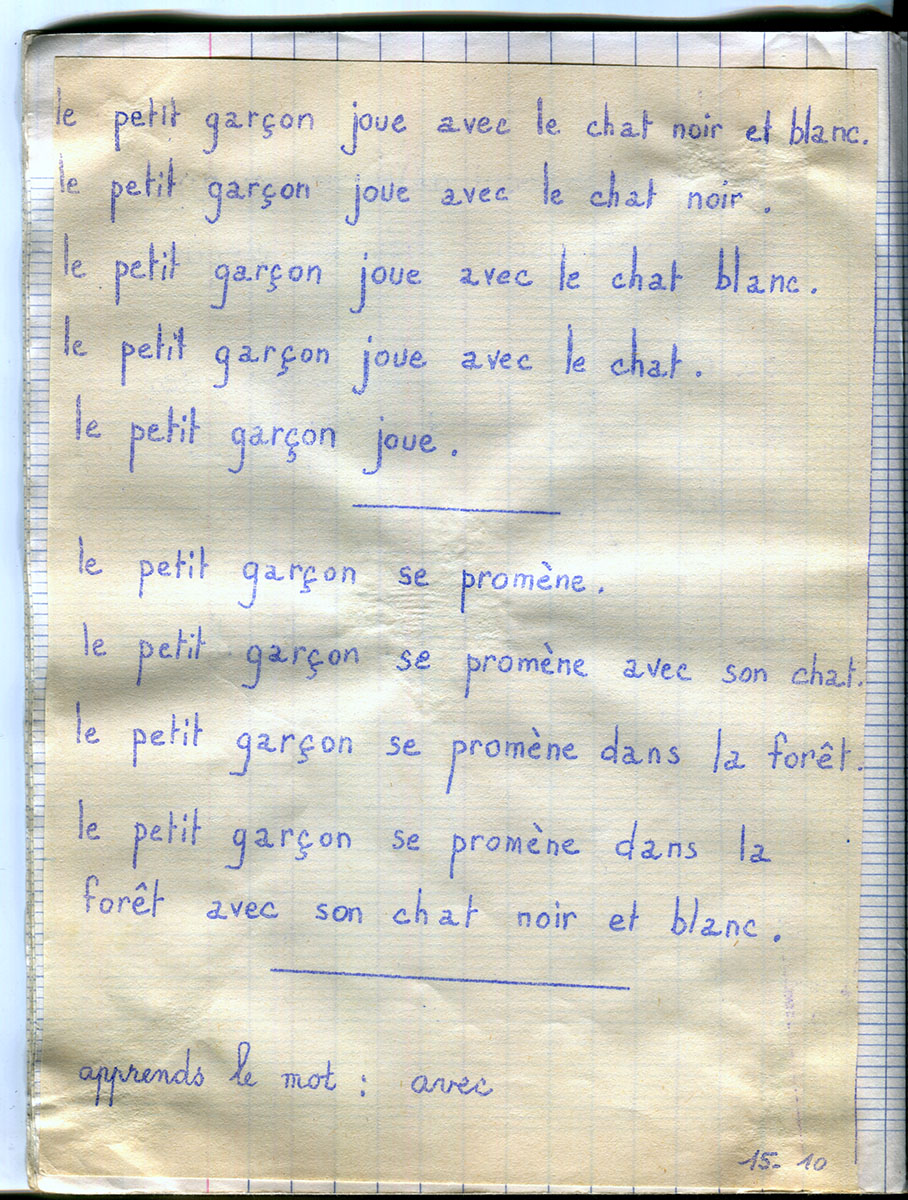 le petit garçon joue avec le chat noir et blanc.
le petit garçon joue avec le chat noir.
le petit garçon joue avec le chat blanc.
le petit garçon joue avec le chat.
le petit garçon joue.
le petit garçon se promène.
le petit garçon se promène avec son chat.
le petit garçon se promène dans la forêt.
le petit garçon se promène dans la
forêt avec son chat noir et blanc.
apprends le mot : avec
15-10